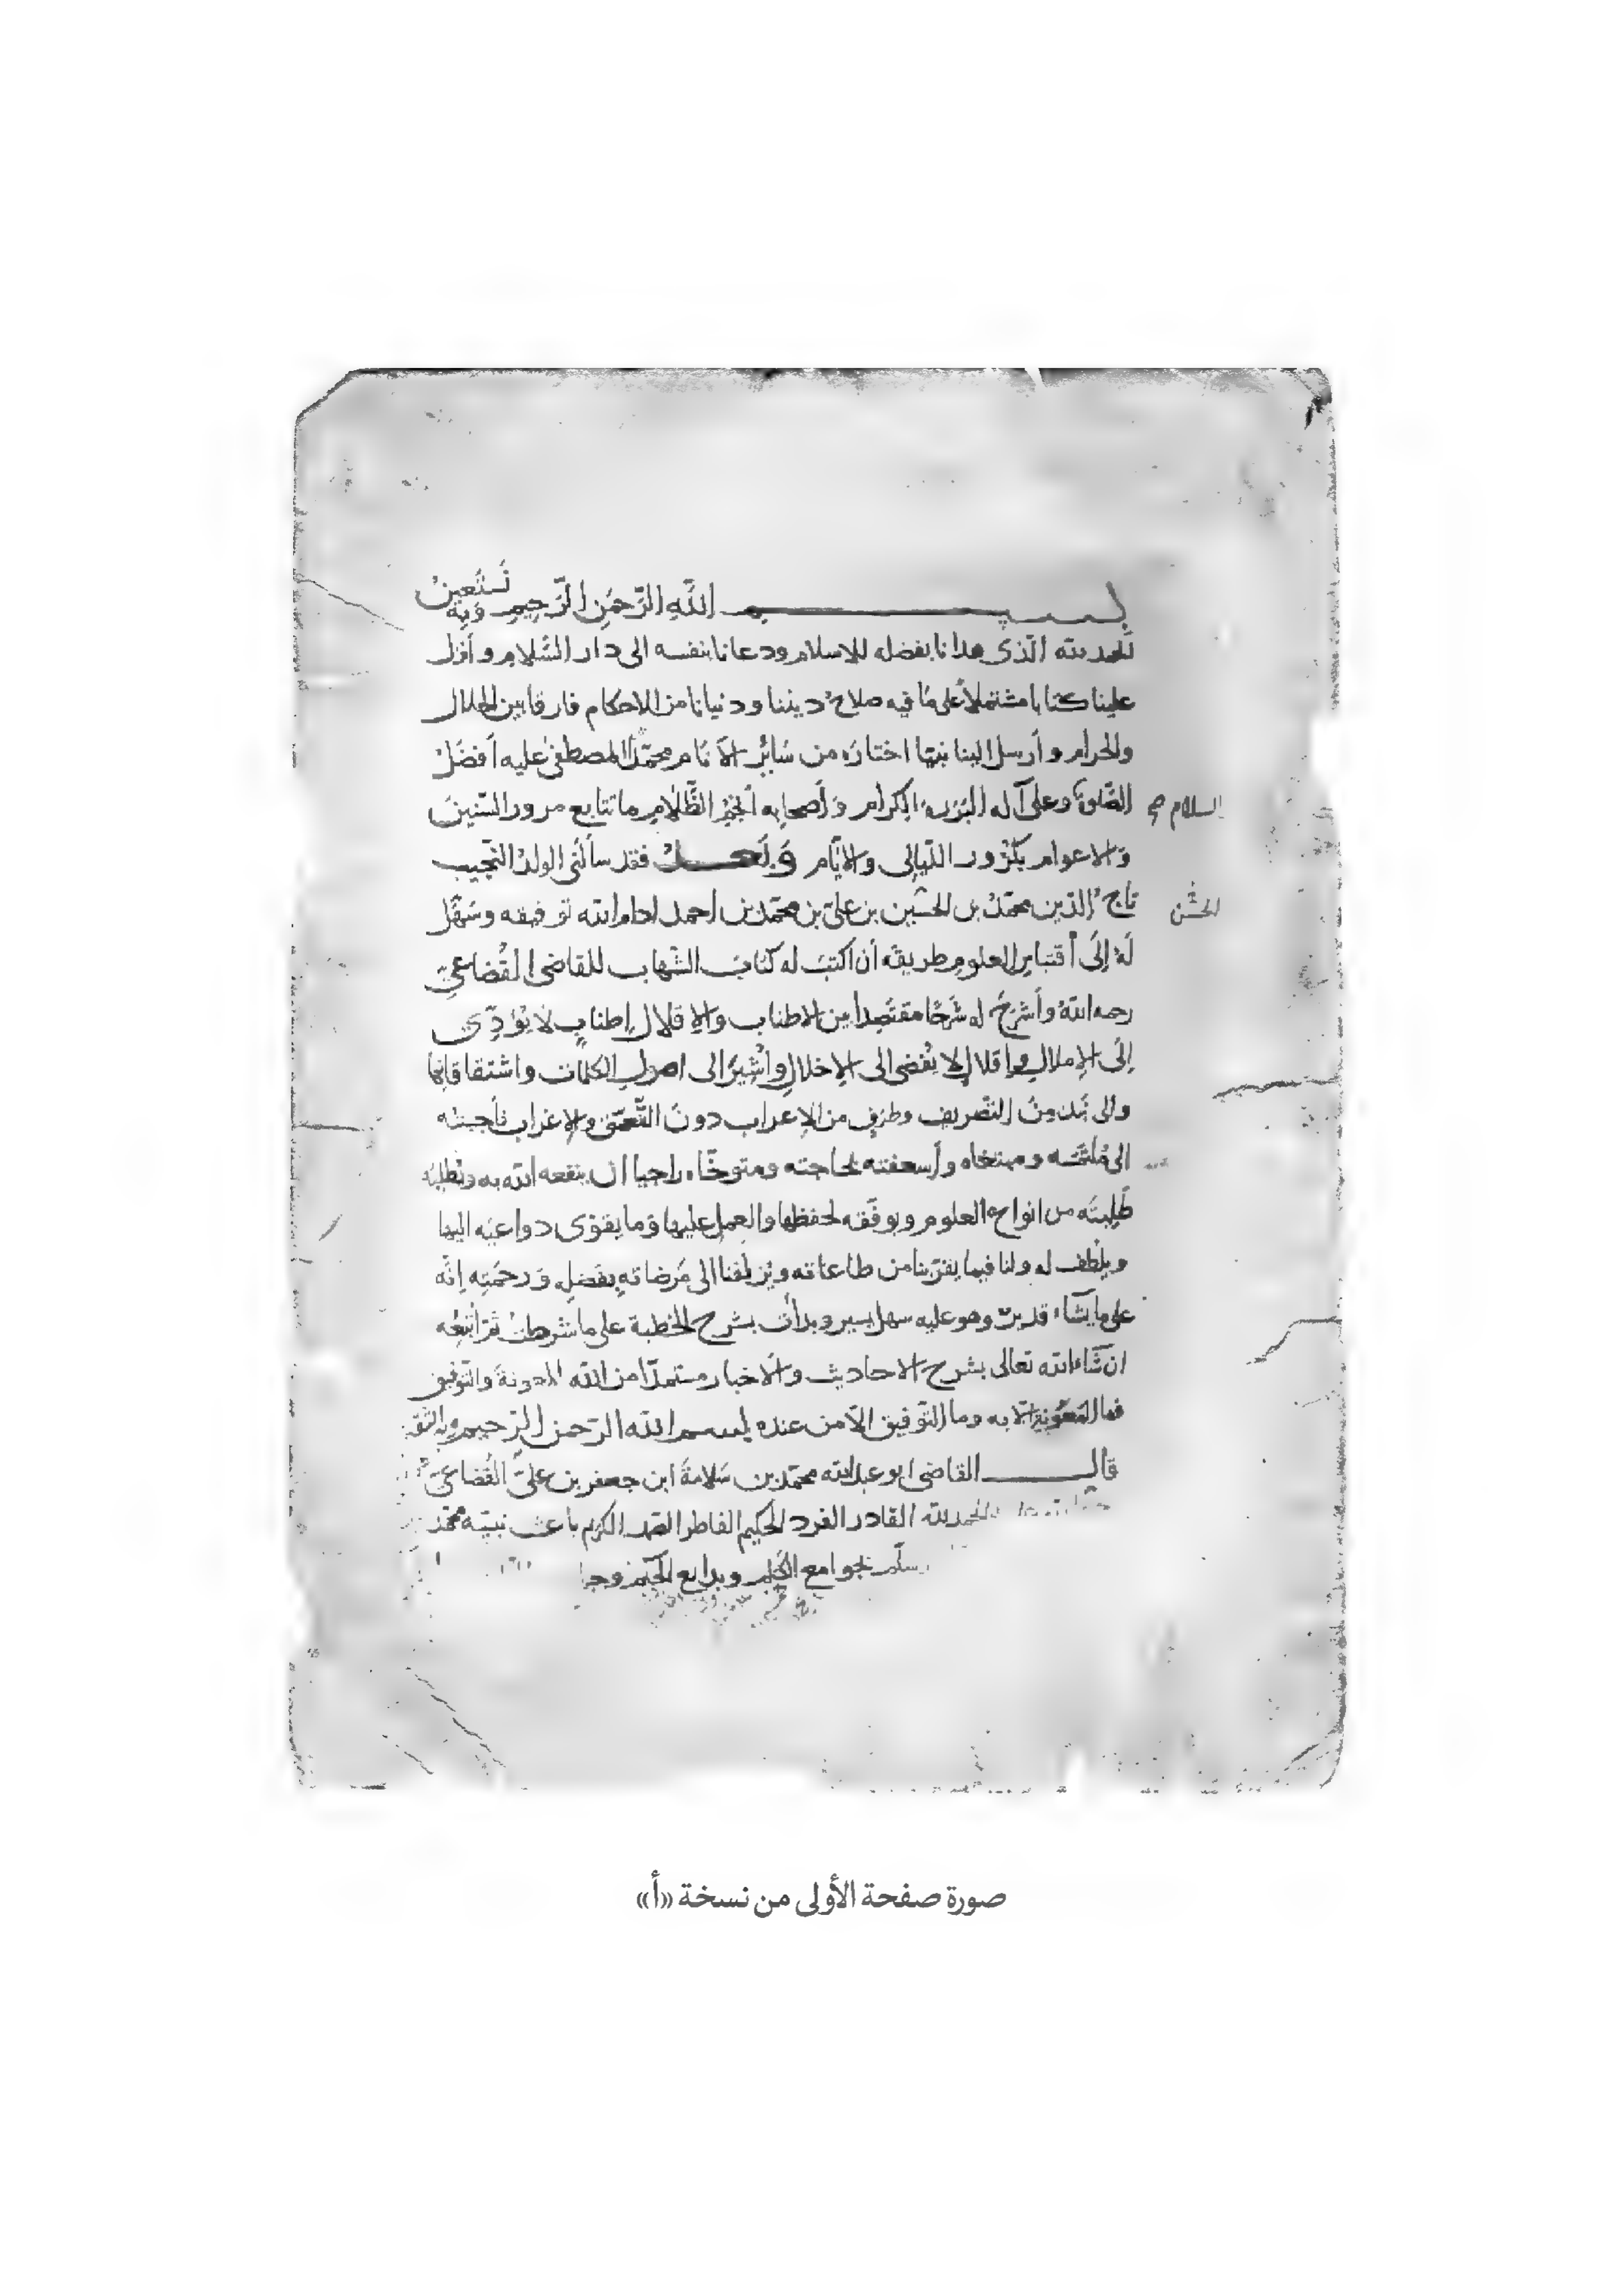 بسم الله الرحمن الرحيم وبه نستعين
الحمد لله الذى هدانا بفضله للاسلام ودعانا بنفسه الى دار السّلام وأنزل
علينا كتابا مشتملاً على مَا فيه صلاحُ ديننا ودنيانا من الاحكام فارقا بين الحلال
والحرام وأرسل الينا نبيّا اختارَه من سَائر الأنَام محمّد المصطفى عليه أفضَلُ
الصّلوة وعلى آله البَررة الكرام وَأصحابه أنجم الظَّلام ما تتابع مرور السّنين
السلام صح
وَالاعوام بكرُور اللّيالى والايّام وَبَعدُ فقد سألنى الولدُ النّجيب
تاجُ الدّين محمّد بن الحسين بن علىّ بن محمّد بن احمد ادام الله توفيقه وسَهّل
الحسن
لَهُ إلَى أقتباس العلوم طريقه أن اكتبَ له كتابَ الشهاب للقاضى القُضاعىّ
رحمه الله وأشرحَ له شَرحًا مقتَصِدا بين الاطناب والاقلال إطنابٍ لَا يُؤدّى
إلَى الإملال وإقلالٍ لا يُفضى الى الإخلال وأُشيرَ الى اصول الكلمات واشتقاقاتها
والى نبذ مِنَ التّصريف وطرفٍ من الإعراب دونَ التّعمّق والإغراب فأجبته
الى مُلتمَسه ومبتغاه وأسعفته بحاجته ومتوخّاه راجيا ان ينفعه الله به
طَلِبتَه من انواع العلوم ويوفّقه لحفظها والعمل عليها وما يقوّى دواعيَه اليها
ويلطف له ولنا فيما يقرّبنا من طاعاته ويُزلفنا الى مَرضاته بفَضلِه وَرحمَتِه إنّه
على ما يشآء قدير وهو عليه سهل يسير وبدأت بشرح الخطبة على ما شرطتُ ثمّ أتبعُه
ان شَاء الله تعالى بشرح الاحاديث والأخبار مستمدّا من الله المعونةَ والتوفيق
فما المَعُونة الّا به وما التّوفيق الّا من عنده بسم الله الرّحمن الرّحيم وبه الثقة
قال القاضى ابو عبد الله محمّد بن سَلامةَ ابن جعفر بن علىّ القُضاعىّ
الحمد لله القادر الفرد الحكيم الفاطر الصّمد الكريم باعث نبيّه محمّد
وسلّم بجوامع الكلم وبدايع الحِكم
صورة صفحة الأولى من نسخة «أ»